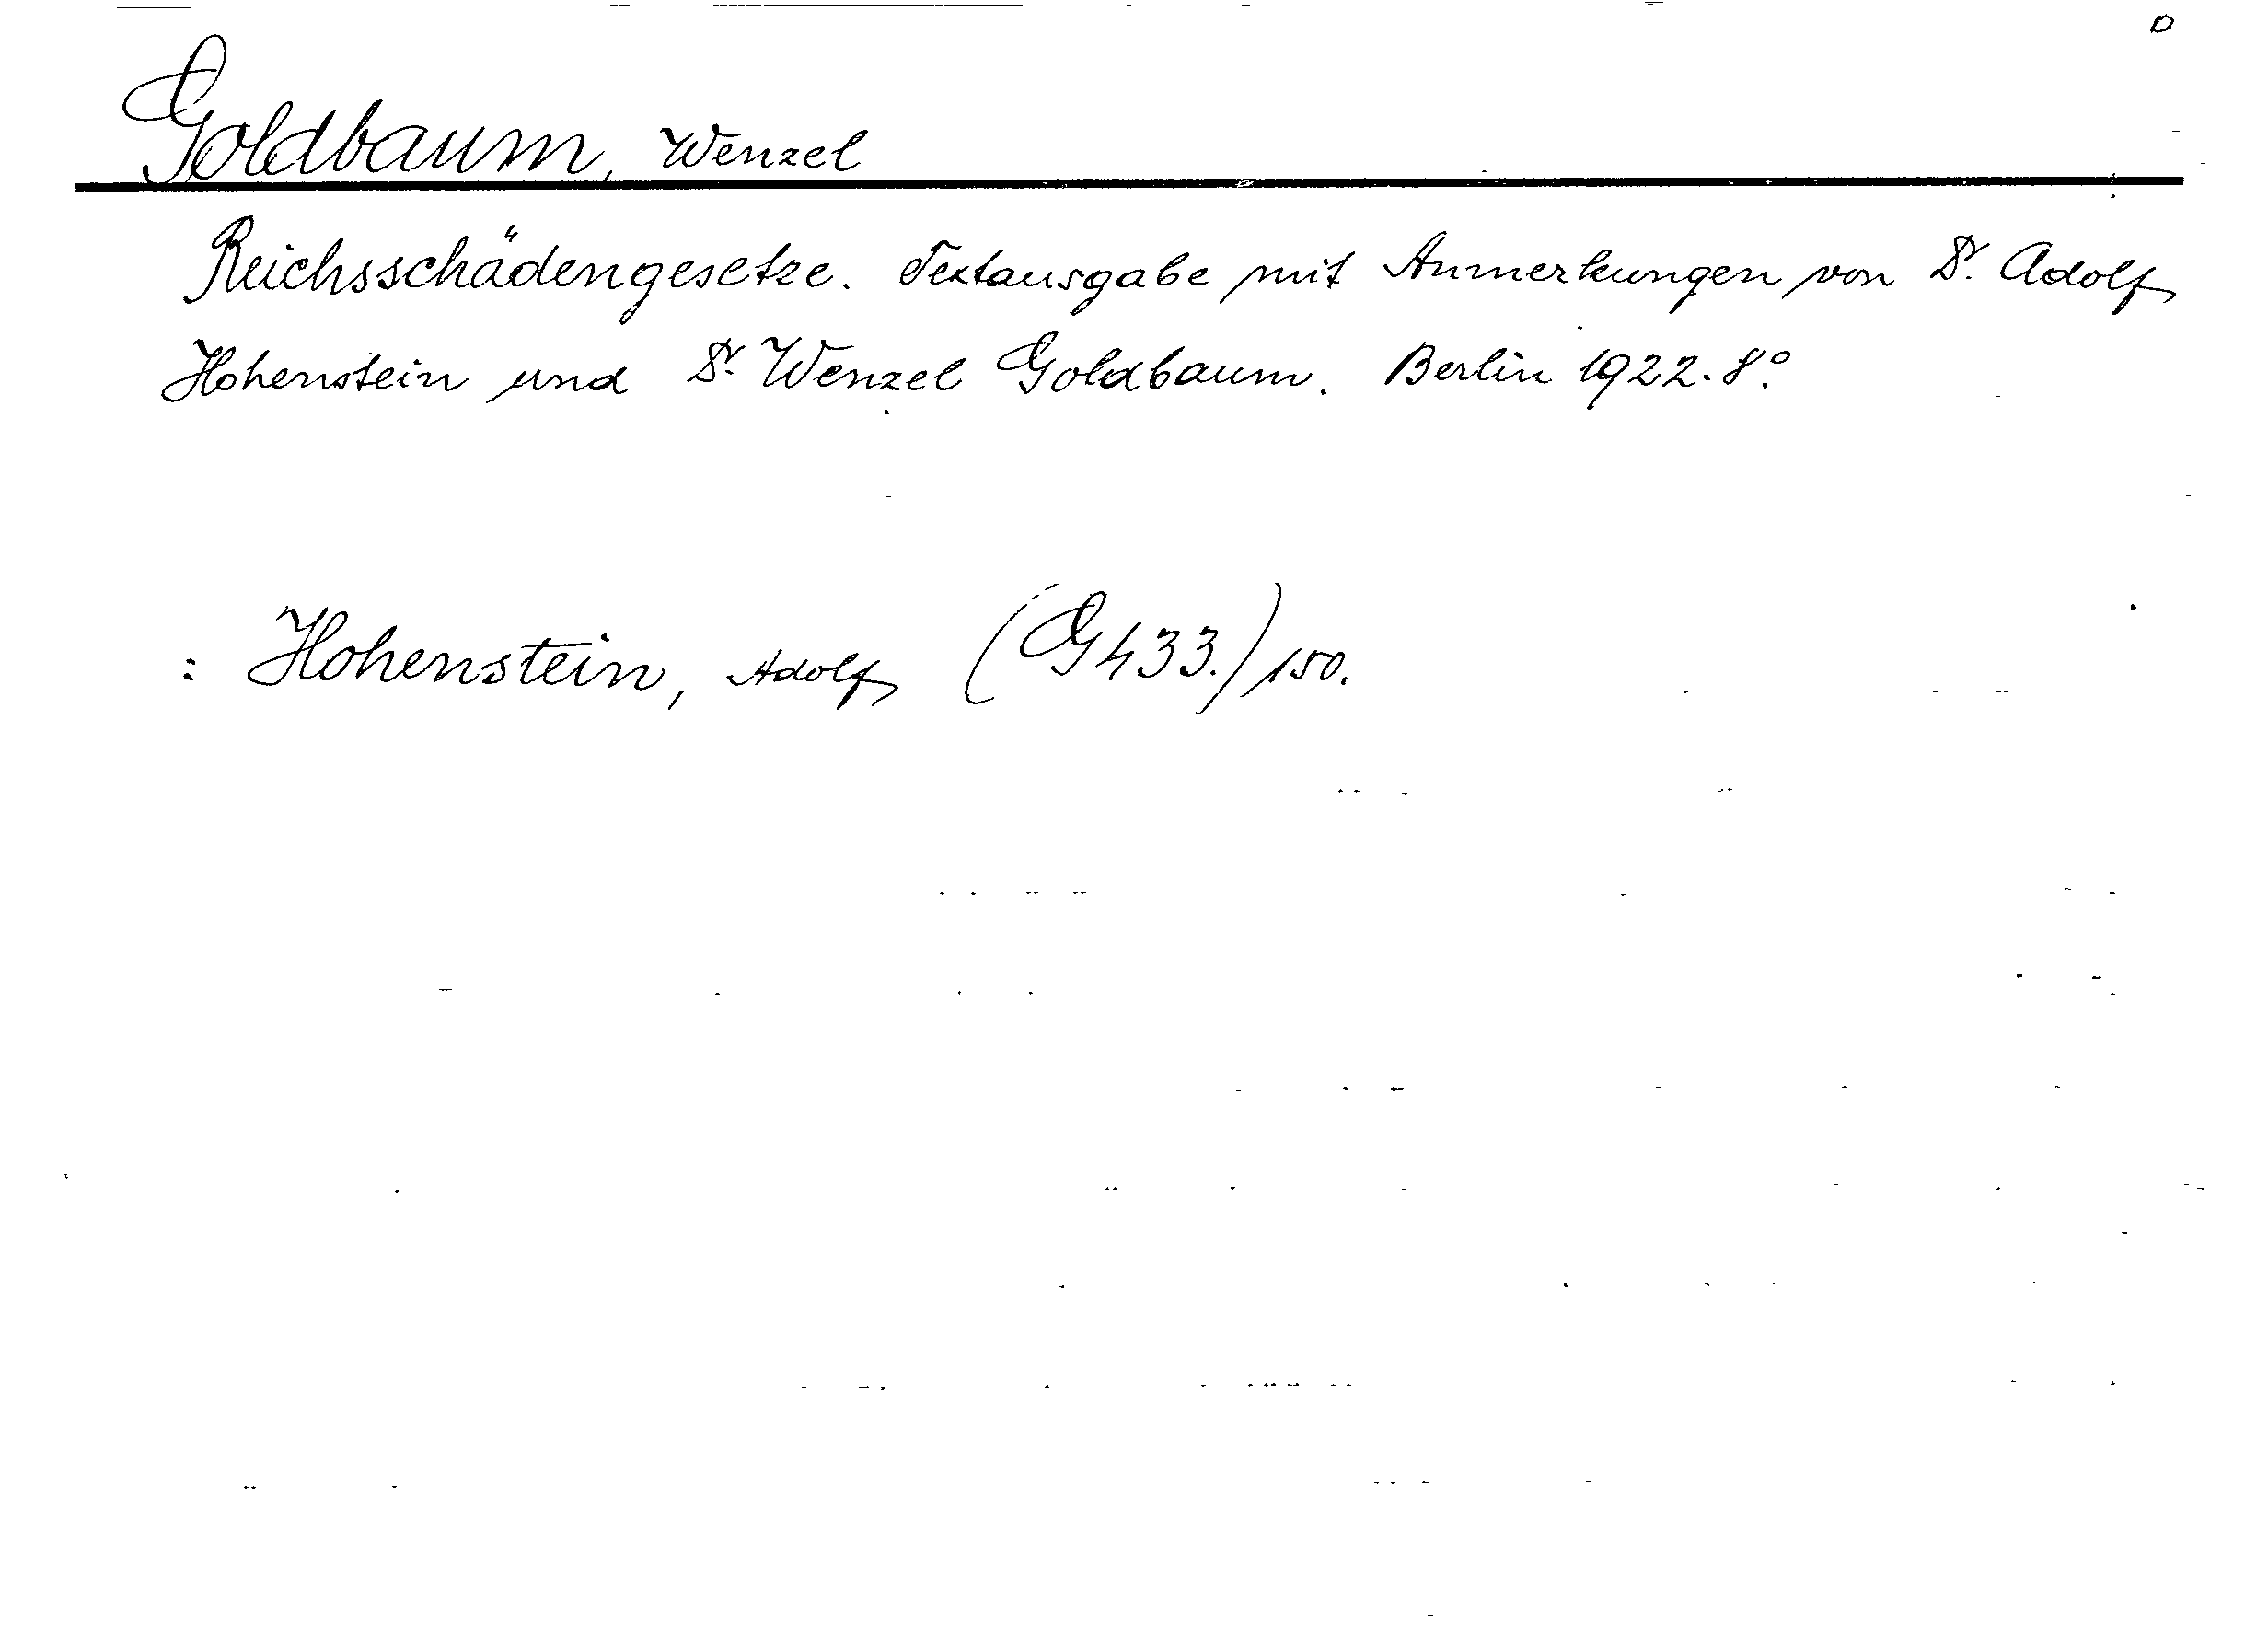 Goldbaum, Wenzel
Reichsschädengesetze. Textausgabe mit Anmerkungen von Dr. Adolf
Hohenstein und Dr. Wenzel Goldbaum. Berlin 1922. 8°.
: Hohenstein, Adolf (G 433.) 150.